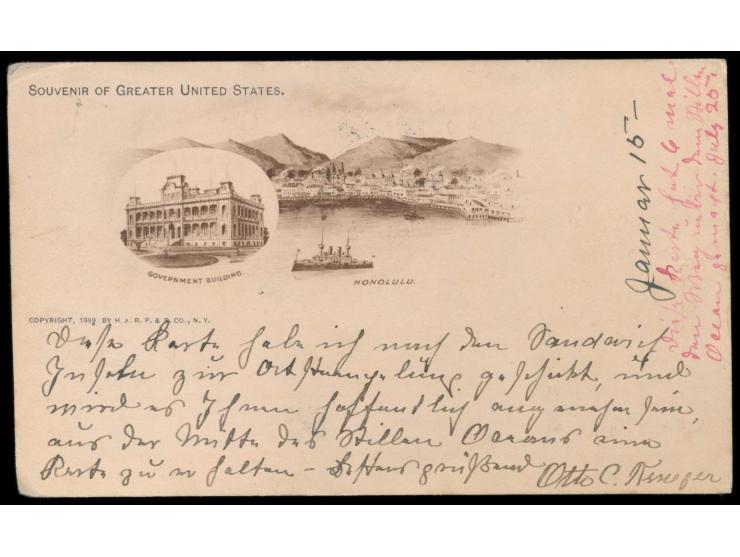 SOUVENIR OF GREATER UNITED STATES.
GOVERNMENT BUILDING.
HONOLULU.
COPYRIGHT, 1899 BY H. A. R. P. & CO., N. Y.
Januar 15 –
Diese Karte hat 6 mal
den Weg über den Stillen
Ocean gemacht. July 25.
Diese Karte habe ich nach den Sandwich
Inseln zur Abstempelung geschickt, und
wird es Ihnen hoffentlich angenehm sein,
aus der Mitte des Stillen Oceans eine
Karte zu erhalten – Bestens grüßend
Otto C.